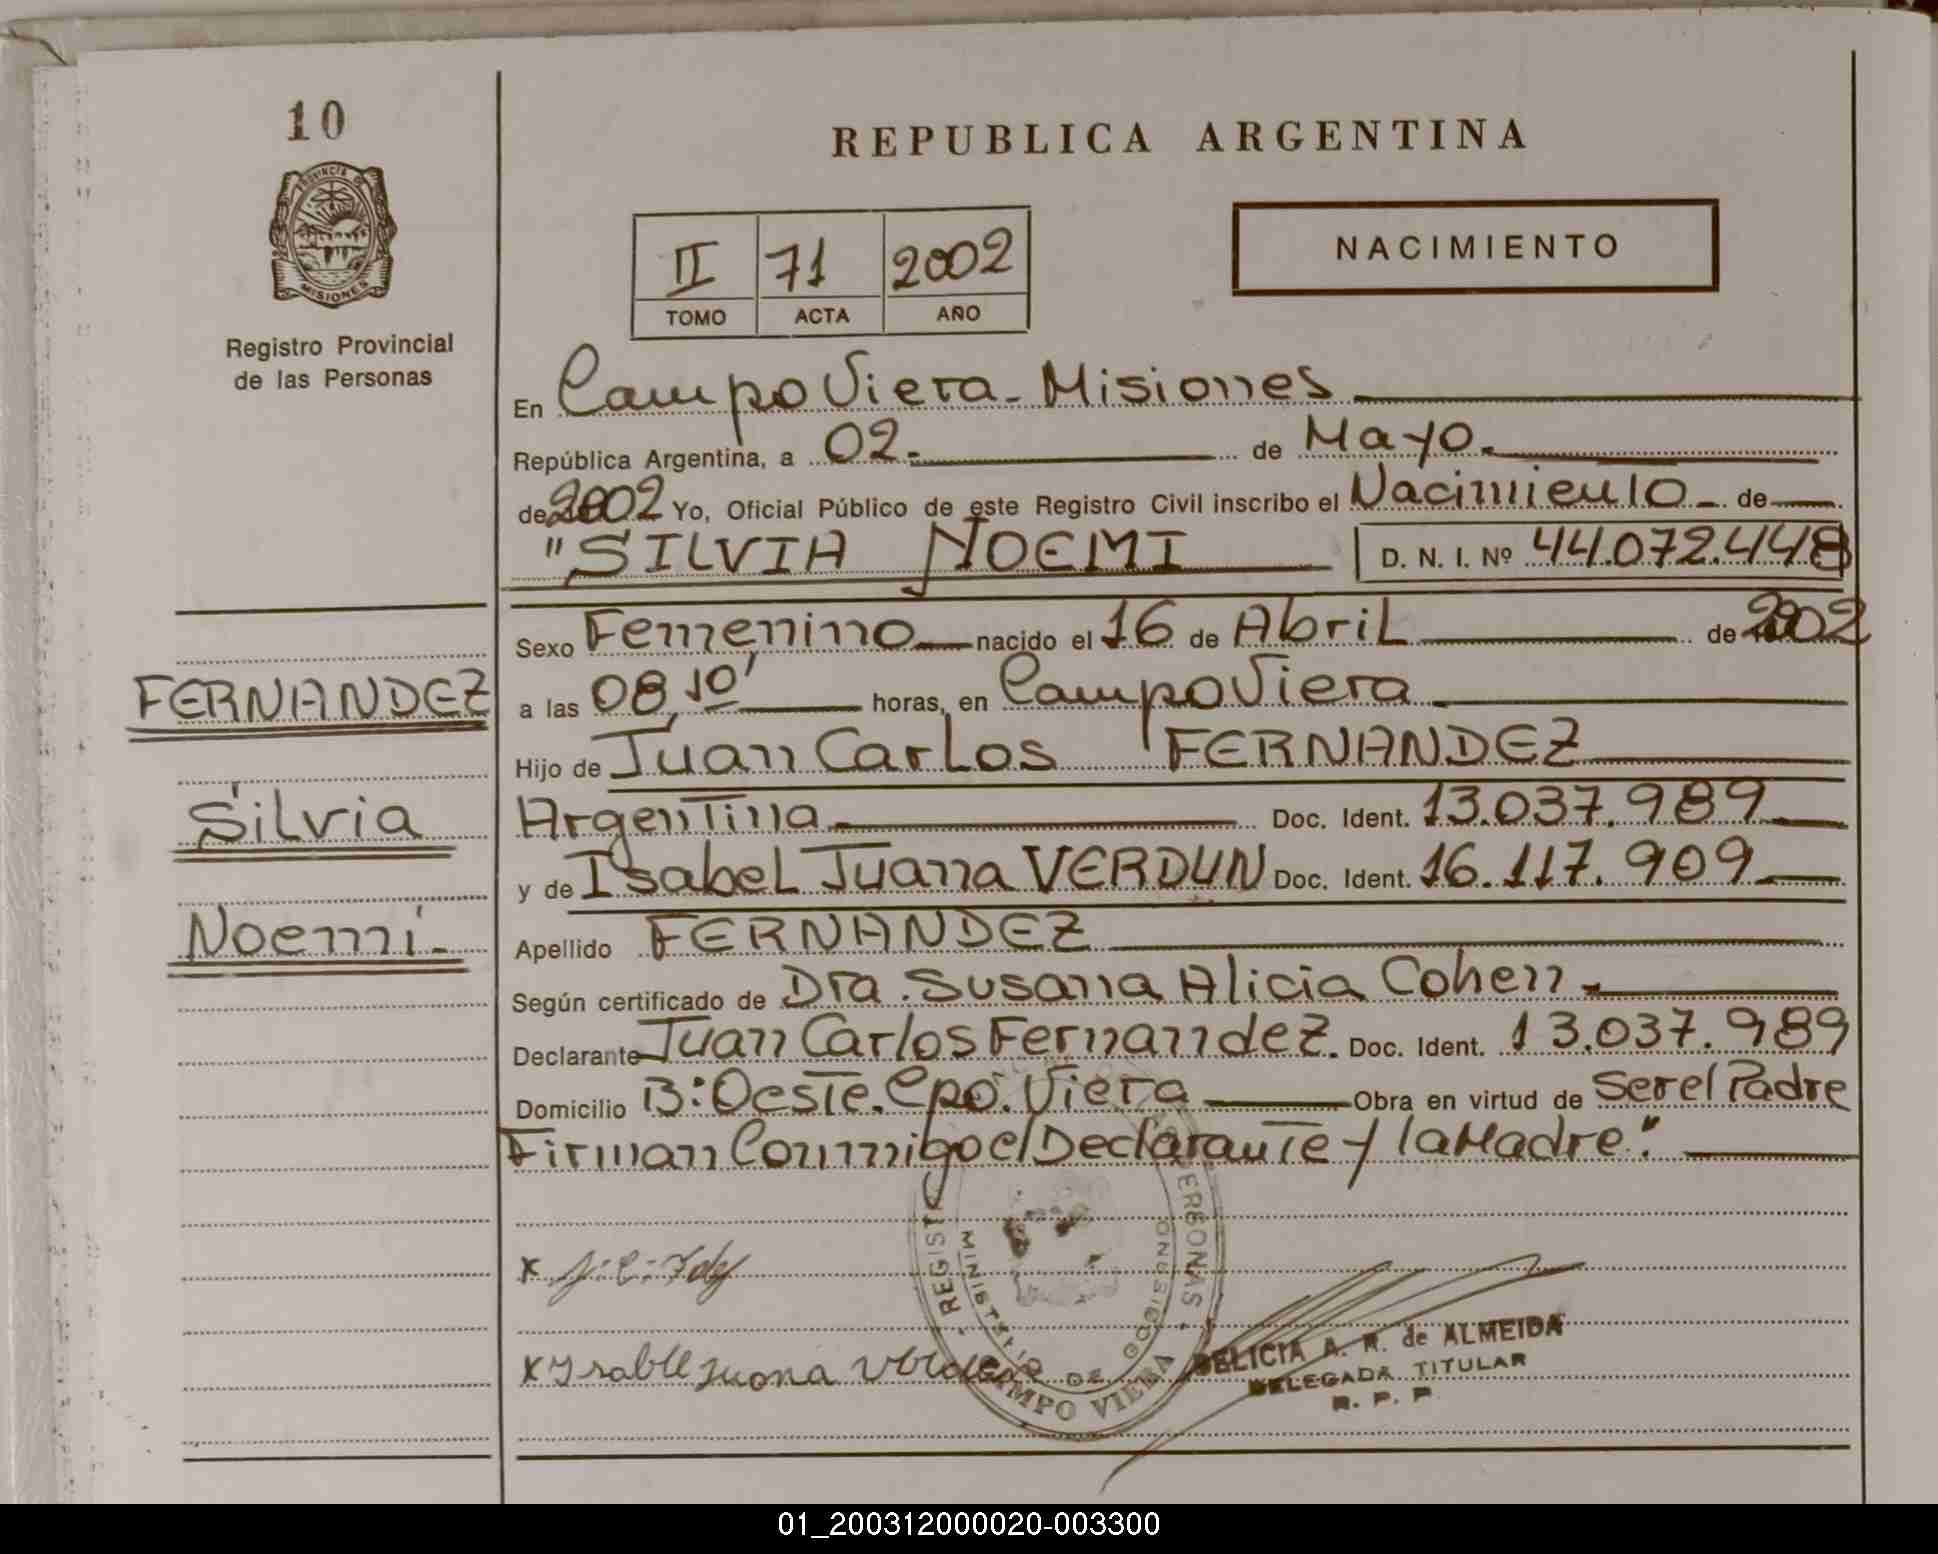 10
REPUBLICA ARGENTINA
PROVINCIA DE
MISIONES
Registro Provincial
de las Personas
II 71 2002
TOMO ACTA AÑO
NACIMIENTO
En Campo Viera - Misiones
República Argentina, a 02.- de Mayo.
de 2002 Yo, Oficial Público de este Registro Civil inscribo el Nacimiento - de
"SILVIA NOEMI D. N. I. Nº 44.072.448
Sexo Femenino nacido el 16 de Abril de 2002
FERNANDEZ
a las 08,10' horas, en Campo Viera
Hijo de Juan Carlos FERNANDEZ
Silvia
Argentina Doc. Ident. 13.037.989
y de Isabel Juana VERDUN Doc. Ident. 16.117.909
Noemi.-
Apellido FERNANDEZ
Según certificado de Dra. Susana Alicia Cohen.
Declarante Juan Carlos Fernandez. Doc. Ident. 13.037.989
Domicilio B: Oeste. Cpo. Viera Obra en virtud de Ser el Padre
Firman Conmigo el Declarante y la Madre."
x J.C. Fdz
x Isabel Juana
CAMPO VIERA
DELICIA A. R. de ALMEIDA
DELEGADA TITULAR
R. P. P.
01_200312000020-003300